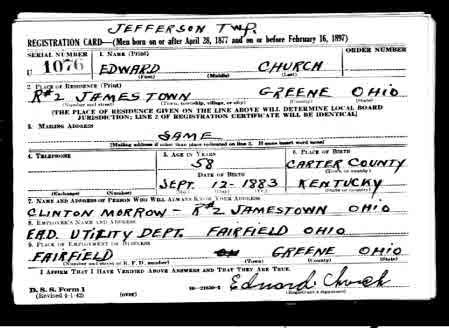 JEFFERSON TWP.
REGISTRATION CARD—(Men born on or after April 28, 1877 and on or before February 16, 1897)
SERIAL NUMBER 1. NAME (Print) ORDER NUMBER
U 1076 EDWARD CHURCH
(First) (Middle) (Last)
2. PLACE OF RESIDENCE (Print)
R#2 JAMESTOWN GREENE OHIO
(Number and street) (Town, township, village, or city) (County) (State)
(THE PLACE OF RESIDENCE GIVEN ON THE LINE ABOVE WILL DETERMINE LOCAL BOARD
JURISDICTION; LINE 2 OF REGISTRATION CERTIFICATE WILL BE IDENTICAL)
3. MAILING ADDRESS
SAME
(Mailing address if other than place indicated on line 2. If same insert word same)
4. TELEPHONE 5. AGE IN YEARS 6. PLACE OF BIRTH
58 CARTER COUNTY
DATE OF BIRTH (Town or county)
SEPT. 12-1883 KENTUCKY
(Exchange) (Number) (Mo.) (Day) (Yr.) (State or country)
7. NAME AND ADDRESS OF PERSON WHO WILL ALWAYS KNOW YOUR ADDRESS
CLINTON MORROW - R#2 JAMESTOWN OHIO
8. EMPLOYER'S NAME AND ADDRESS
UTILITY DEPT. FAIRFIELD OHIO
9. PLACE OF EMPLOYMENT OR BUSINESS
FAIRFIELD GREENE OHIO
(Number and street or R. F. D. number) (Town) (County) (State)
I AFFIRM THAT I HAVE VERIFIED ABOVE ANSWERS AND THAT THEY ARE TRUE.
D. S. S. Form 1
(Revised 4-1-42) (over) 16—21630-2 Edward Church
(Registrant's signature)